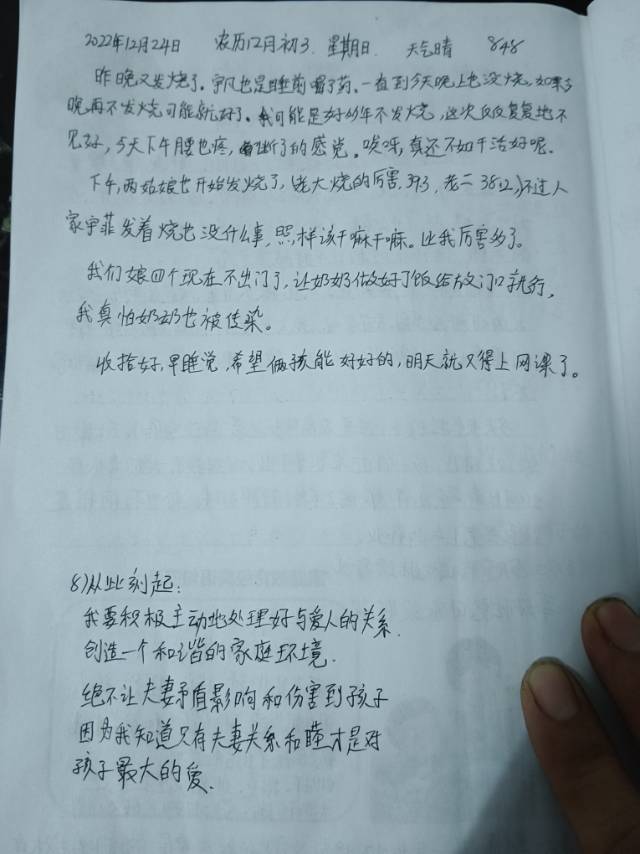 2022年12月24日 农历12月初3 星期日 天气晴 848
昨晚又发烧了。宁凡也是睡前喝了药。一直到今天晚上也没烧,如果今
晚再不发烧可能就好了。我可能是好幼年不发烧,这次反反复复地不
见好,今天下午腰也疼,断了的感觉。唉呀,真还不如干活好呢。
下午,两姑娘也开始发烧了,(老大烧的厉害,393,老二38.2)不过人
家宇菲发着烧也没什么事,照样该干嘛干嘛。比我厉害多了。
我们娘四个现在不出门了,让奶奶做好了饭给放门口就行,
我真怕奶奶也被传染。
收拾好,早睡觉,希望俩孩能好好的,明天就又得上网课了。
8)从此刻起:
我要积极主动地处理好与爱人的关系.
创造一个和谐的家庭环境.
绝不让夫妻矛盾影响和伤害到孩子
因为我知道只有夫妻关系和睦才是对
孩子最大的爱.